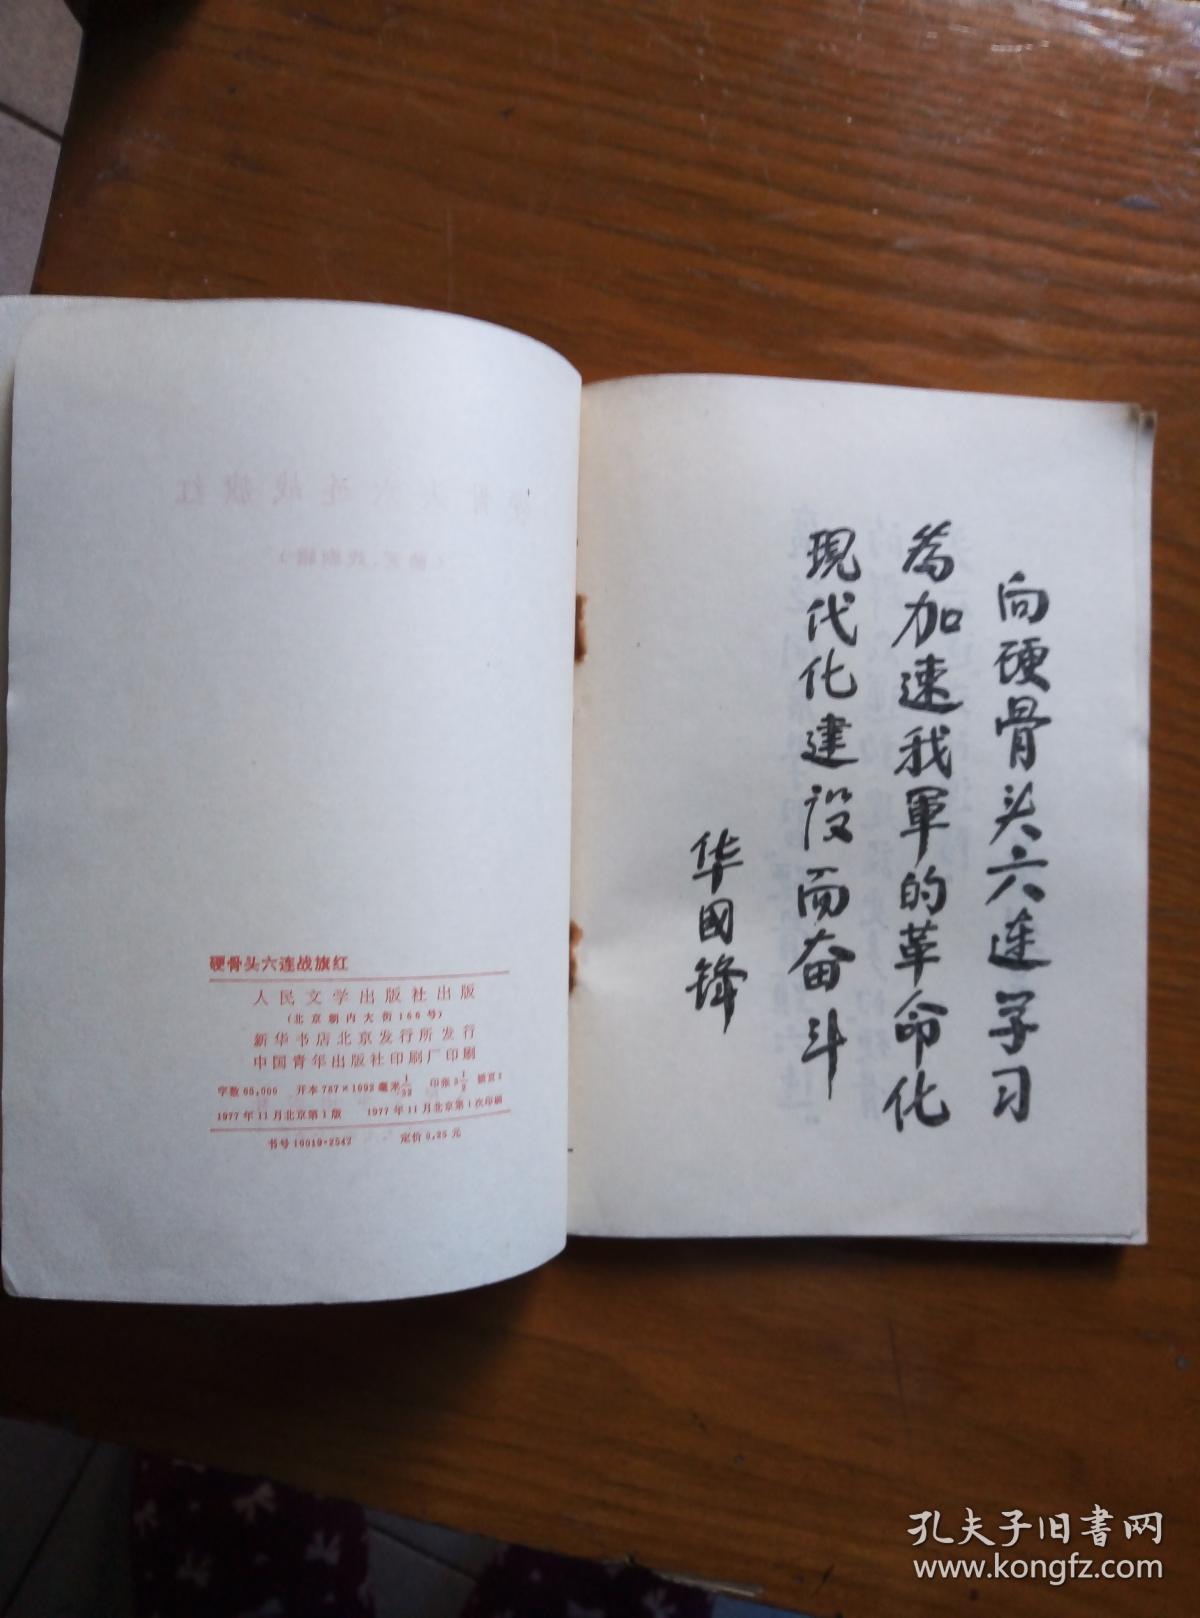 硬骨头六连战旗红
人民文学出版社出版
(北京朝内大街166号)
新华书店北京发行所发行
中国青年出版社印刷厂印刷
字数65,000 开本787×1092毫米1/32 印张3 1/2 插页2
1977年11月北京第1版 1977年11月北京第1次印刷
书号10019·2542 定价0.25元
向硬骨头六连学习
為加速我軍的革命化
現代化建设而奋斗
华國锋
孔夫子旧書网
www.kongfz.com